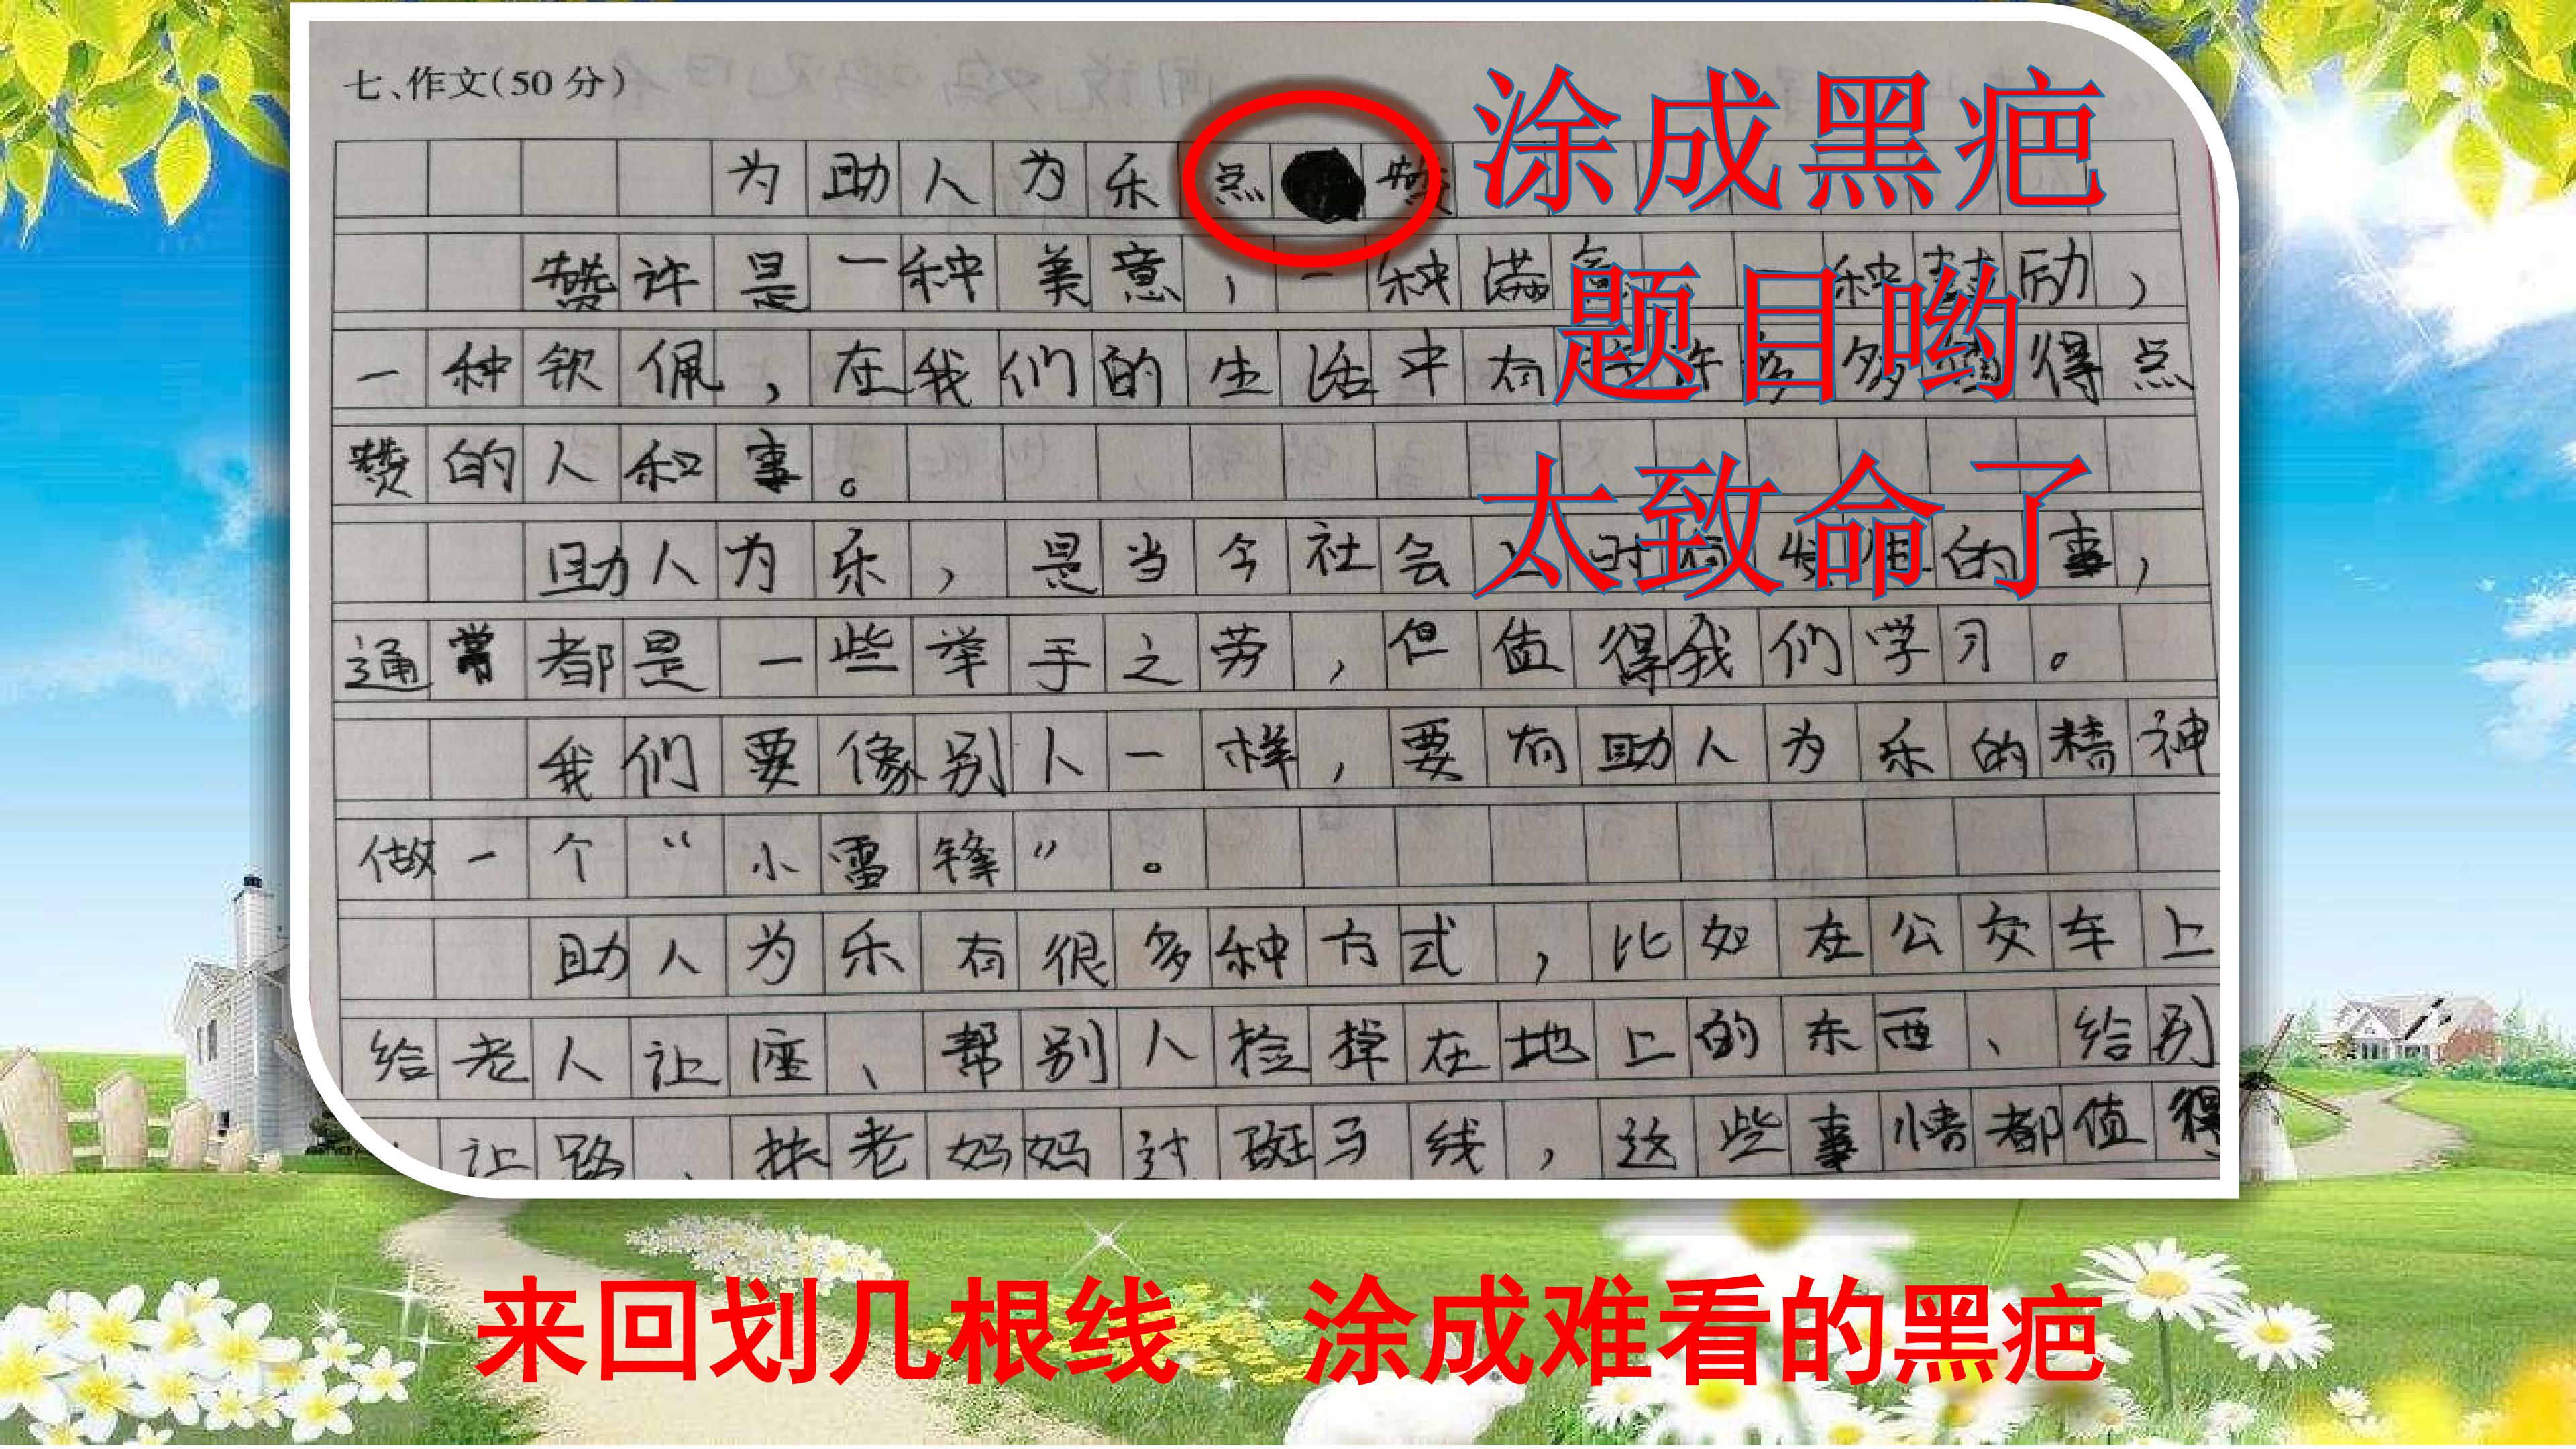 七、作文(50分)
为助人为乐点赞
涂成黑疤
赞许是一种美意，一种满意、一种鼓励，
题目哟
一种钦佩，在我们的生活中有许许多多值得点
赞的人和事。
太致命了
助人为乐，是当今社会上时有发生的事，
通常都是一些举手之劳，但值得我们学习。
我们要像别人一样，要有助人为乐的精神
做一个“小雷锋”。
助人为乐有很多种方式，比如在公交车上
给老人让座、帮别人捡掉在地上的东西、给别
让路、扶老妈妈过斑马线，这些事情都值得
来回划几根线 涂成难看的黑疤